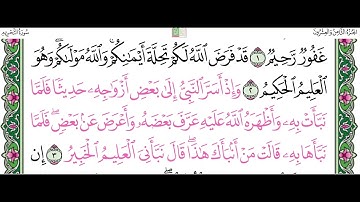 سُورَةُ التَّحْرِيمِ الجُزْءُ الثَّامِنُ وَالعِشْرُونَ
غَفُورٌ رَّحِيمٌ ١ قَدْ فَرَضَ اللَّهُ لَكُمْ تَحِلَّةَ أَيْمَانِكُمْ ۚ وَاللَّهُ مَوْلَاكُمْ ۖ وَهُوَ
الْعَلِيمُ الْحَكِيمُ ٢ وَإِذْ أَسَرَّ النَّبِيُّ إِلَىٰ بَعْضِ أَزْوَاجِهِ حَدِيثًا فَلَمَّا
نَبَّأَتْ بِهِ وَأَظْهَرَهُ اللَّهُ عَلَيْهِ عَرَّفَ بَعْضَهُ وَأَعْرَضَ عَن بَعْضٍ ۖ فَلَمَّا
نَبَّأَهَا بِهِ قَالَتْ مَنْ أَنبَأَكَ هَٰذَا ۖ قَالَ نَبَّأَنِيَ الْعَلِيمُ الْخَبِيرُ ٣ إِن